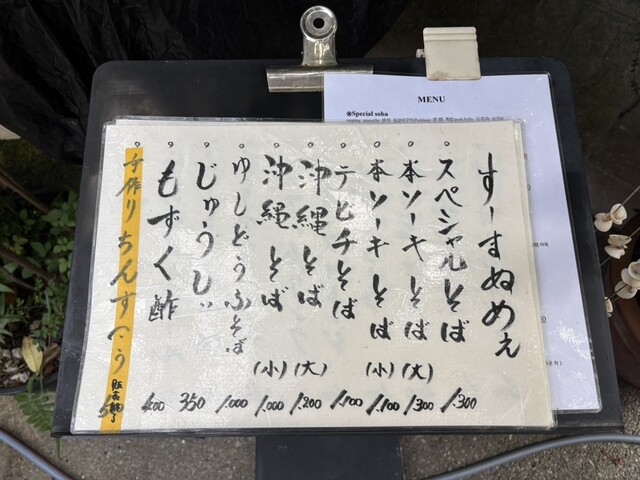 すーすぬめぇ
。スペシャルそば 1.300
。本ソーキそば(大) 1.300
。本ソーキそば(小) 1.100
。テビチそば 1.100
。沖縄そば(大) 1.200
。沖縄そば(小) 1.000
。ゆしどうふそば 1.000
。じゅうしぃ 350
。もずく酢 400
。手作りちんすこう 販売終了
MENU
※Special soba